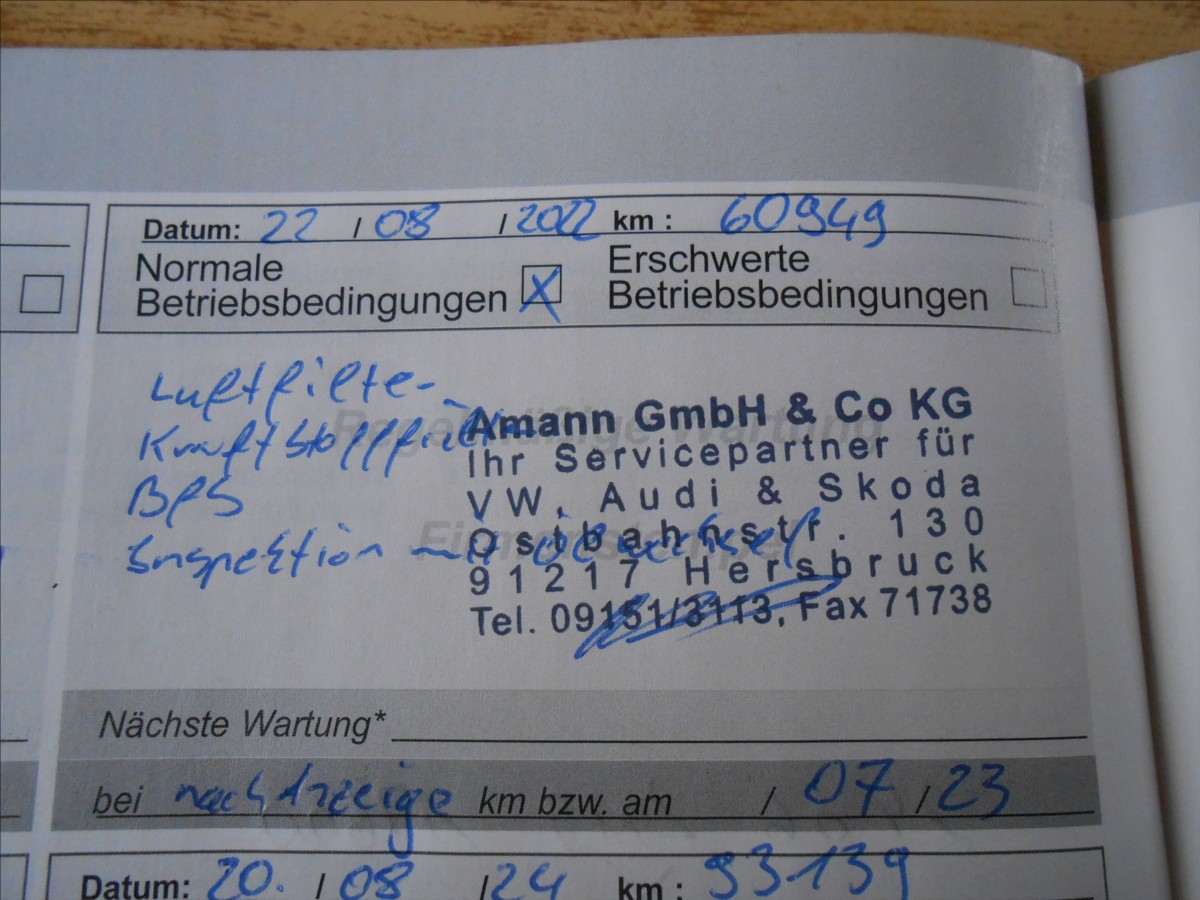 Datum: 22 / 08 / 2022 km : 60949
Normale Betriebsbedingungen X
Erschwerte Betriebsbedingungen
Luftfilter
Kraftstofffilter
BFS
Inspektion mit Ölwechsel
Regelmäßige Wartung
Firmenstempel
Amann GmbH & Co KG
Ihr Servicepartner für
VW, Audi & Skoda
Ostbahnstr. 130
91217 Hersbruck
Tel. 09151/3113, Fax 71738
Nächste Wartung*
bei nach Anzeige km bzw. am / 07 / 23
Datum: 20. / 08 / 24 km : 93139